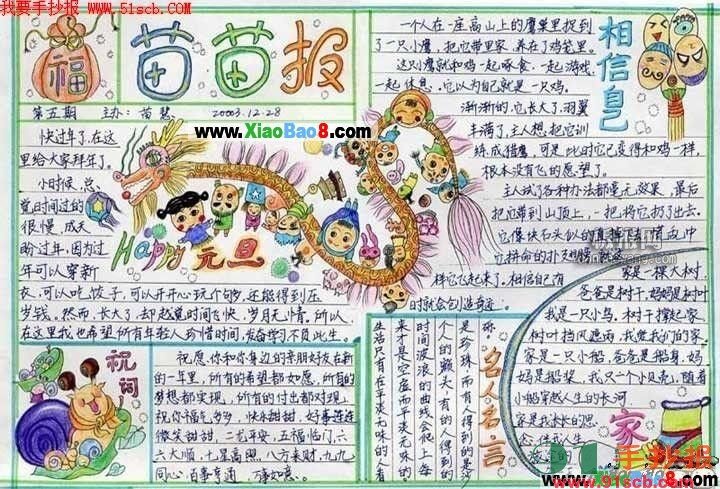 我要手抄报 www.51scb.com
福
苗苗报
第五期 主办：苗慧 2003.12.28
www.XiaoBao8.com
快过年了，在这
里给大家拜年了。
小时候，总
觉时间过的
很慢，成天
盼过年，因为过
年可以穿新
衣，可以吃饺子，可以开开心心玩个够，还能得到压
岁钱。然而，长大了，却越觉时间飞快，岁月无情。所以，
在这里我也希望所有年轻人珍惜时间，发奋学习不负此生。
Happy 元旦
相信自己
一个人在一座高山上的鹰巢里捉到
了一只小鹰，把它带回家，养在了鸡笼里。
这只鹰就和鸡一起啄食，一起游戏，
一起休息，它以为自己就是一只鸡。
渐渐的，它长大了，羽翼
丰满了，主人想把它训
练成猎鹰，可是此时它已变得和鸡一样，
根本没有飞的愿望了。
主人试了各种办法都毫无效果，最后
把它带到山顶上，一把将它扔了出去。
它像块石头似的直
它拼命的扑
样它飞起来了。相信自
时就会创造奇迹。
祝词
祝愿你和你身边的亲朋好友在新
的一年里，所有的希望都如愿，所有的
梦想都实现，所有的付出都对现。
祝你福气多多，快乐甜甜，好事连连
微笑甜甜，二老平安，五福临门，六
六大顺，七星高照，八方来财，九九
同心，百事亨通，万事如意。
名人名言
是珍珠，而有人得到的是沙
个人的额头，有的人得到的
时间波浪的曲线会爬上每
来才是空虚而平淡无味的。
生活只有在平淡无味的人看
家
家是一棵大树，
爸爸是树干，妈妈是树叶
我是一只小鸟，树干撑起家
树叶挡风遮雨，我觉我们的家，
家是一只小船，爸爸是船身，妈
妈是船桨，我只一个小贝壳，随着
小船穿越人生的长河
家是我永长的思
念，伴我人生
手抄报
www.51scb.com
XiaoBao8.com